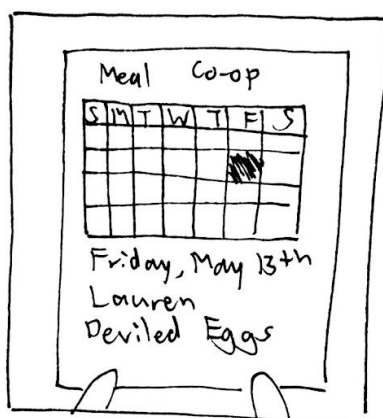 Meal Co-op
S M T W T F S
Friday, May 13th
Lauren
Deviled Eggs